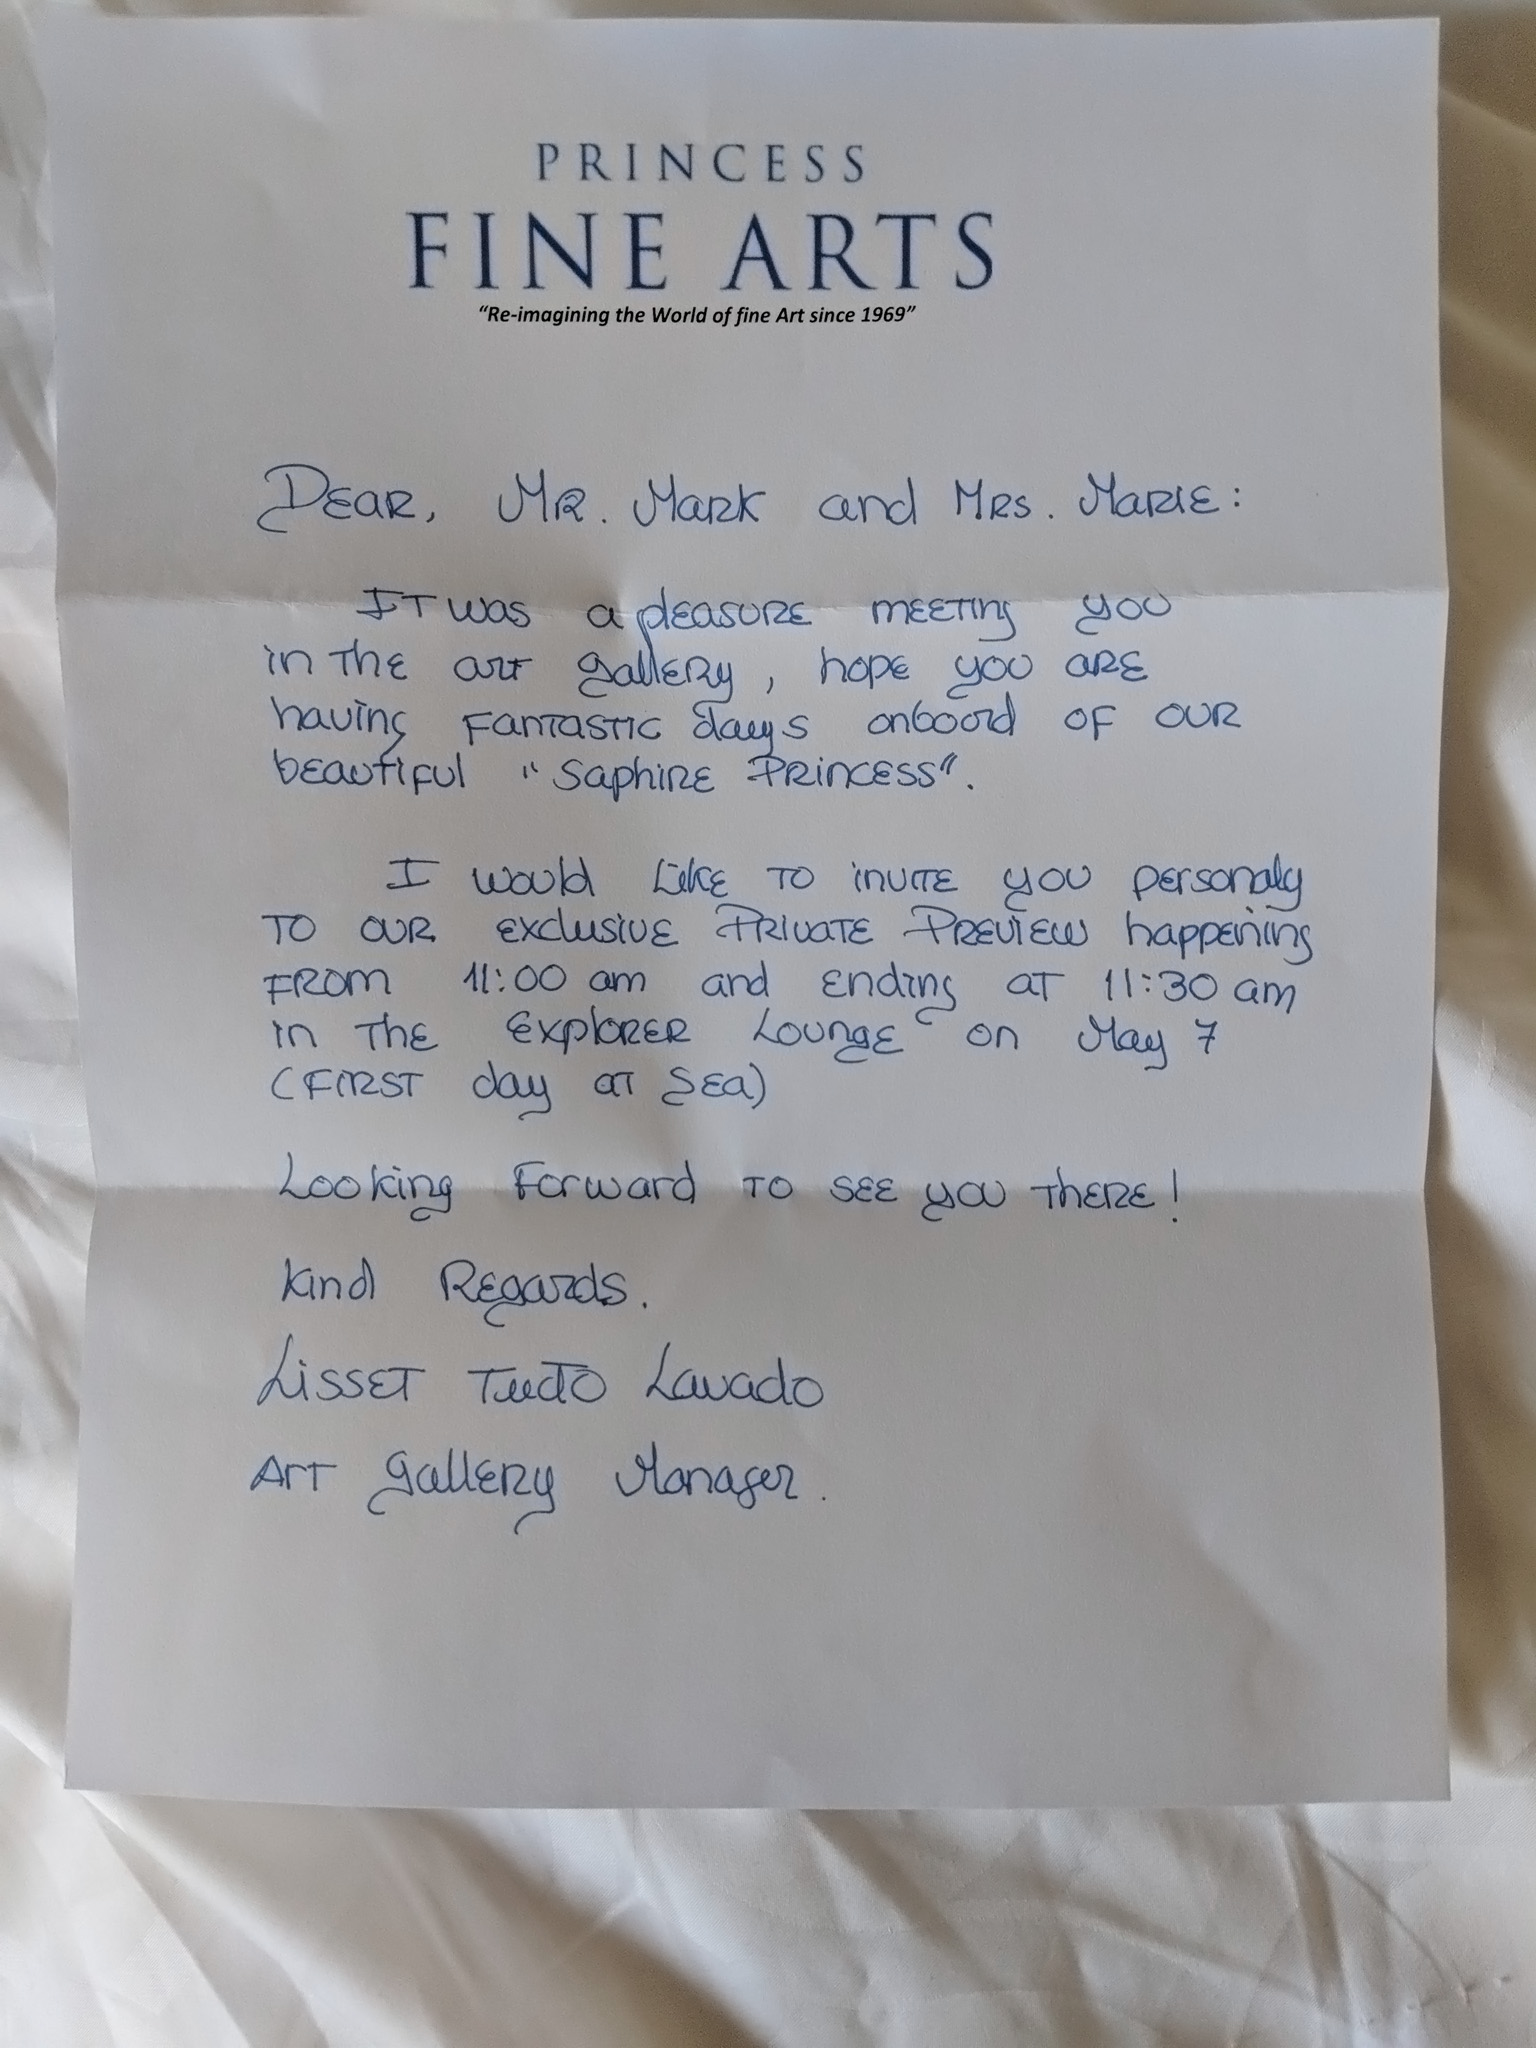 PRINCESS
FINE ARTS
“Re-imagining the World of fine Art since 1969”
Dear, Mr. Mark and Mrs. Marie:
It was a pleasure meeting you
in the art gallery, hope you are
having fantastic days onboord of our
beautiful "Saphire Princess".
I would like to invite you personaly
to our exclusive Private Preview happening
from 11:00 am and ending at 11:30 am
in the Explorer Lounge on May 7
(First day at sea)
Looking forward to see you there!
Kind Regards.
Lisset Lavado
Art Gallery Manager.